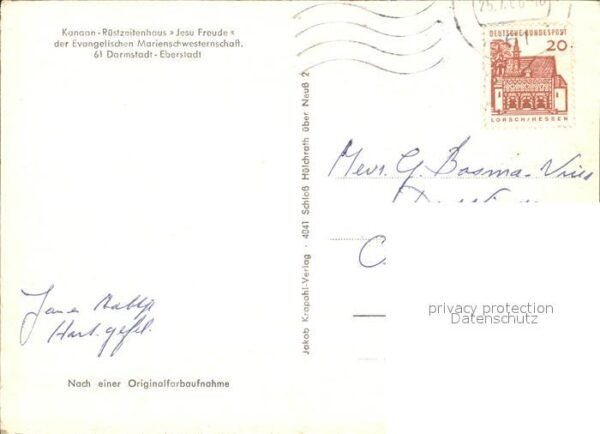 Kanaan - Rüstzeitenhaus » Jesu Freude «
der Evangelischen Marienschwesternschaft,
61 Darmstadt - Eberstadt
25.7.66
DEUTSCHE BUNDESPOST
20
LORSCH/HESSEN
Jakob Krapohl-Verlag · 4041 Schloß Hülchrath über Neuß 2
Mevr. G. Bosma-Vries
C.
privacy protection
Datenschutz
Hart. gefel.
Nach einer Originalfarbaufnahme